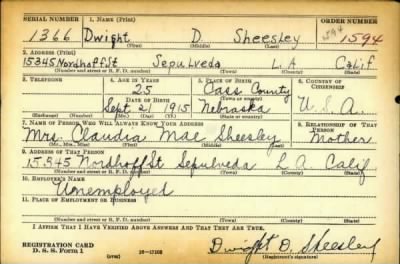 SERIAL NUMBER 1. NAME (Print) ORDER NUMBER
1366 Dwight D Sheesley 1594 1594
(First) (Middle) (Last)
2. ADDRESS (Print)
15345 Nordhoff St Sepulveda L.A Calif
(Number and street or R. F. D. number) (Town) (County) (State)
3. TELEPHONE 4. AGE IN YEARS 5. PLACE OF BIRTH 6. COUNTRY OF CITIZENSHIP
25 Cass County
DATE OF BIRTH (Town or county)
Sept 2, 1915 Nebraska U.S.A.
(Exchange) (Number) (Mo.) (Day) (Yr.) (State or country)
7. NAME OF PERSON WHO WILL ALWAYS KNOW YOUR ADDRESS 8. RELATIONSHIP OF THAT PERSON
Mrs. Claudia Mae Sheesley Mother
(Mr., Mrs., Miss) (First) (Middle) (Last)
9. ADDRESS OF THAT PERSON
15345 Nordhoff St Sepulveda L A Calif
(Number and street or R. F. D. number) (Town) (County) (State)
10. EMPLOYER'S NAME
Unemployed
11. PLACE OF EMPLOYMENT OR BUSINESS
(Number and street or R. F. D. number) (Town) (County) (State)
I AFFIRM THAT I HAVE VERIFIED ABOVE ANSWERS AND THAT THEY ARE TRUE.
REGISTRATION CARD
D. S. S. FORM 1 (over) 16-17105 Dwight D. Sheesley
(Registrant's signature)